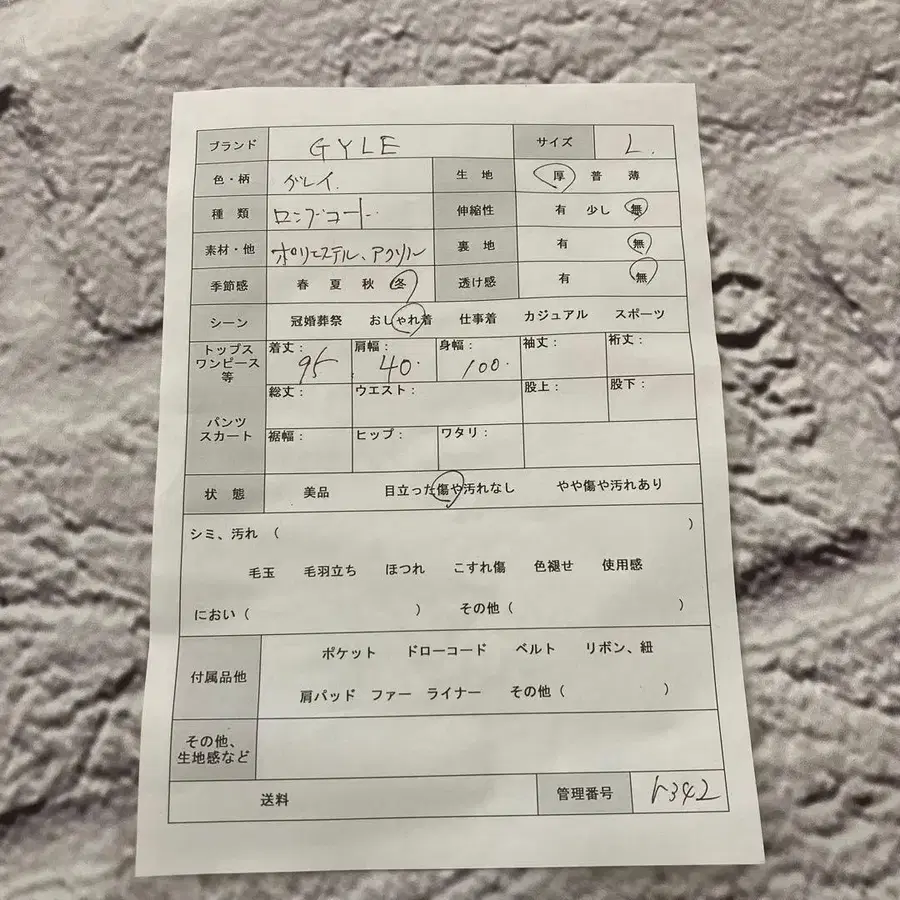 ブランド GYLE サイズ L.
色・柄 グレイ. 生地 厚 普 薄
種類 ロングコート. 伸縮性 有 少し 無
素材・他 ポリエステル、アクリル 裏地 有 無
季節感 春 夏 秋 冬 透け感 有 無
シーン 冠婚葬祭 おしゃれ着 仕事着 カジュアル スポーツ
トップス ワンピース 等 着丈: 95 肩幅: 40. 身幅: 100. 袖丈: 裄丈:
パンツ スカート 総丈: ウエスト: 股上: 股下:
裾幅: ヒップ: ワタリ:
状態 美品 目立った傷や汚れなし やや傷や汚れあり
シミ、汚れ ( )
毛玉 毛羽立ち ほつれ こすれ傷 色褪せ 使用感
におい ( ) その他 ( )
付属品他 ポケット ドローコード ベルト リボン、紐
肩パッド ファー ライナー その他 ( )
その他、
生地感など
送料 管理番号 r342